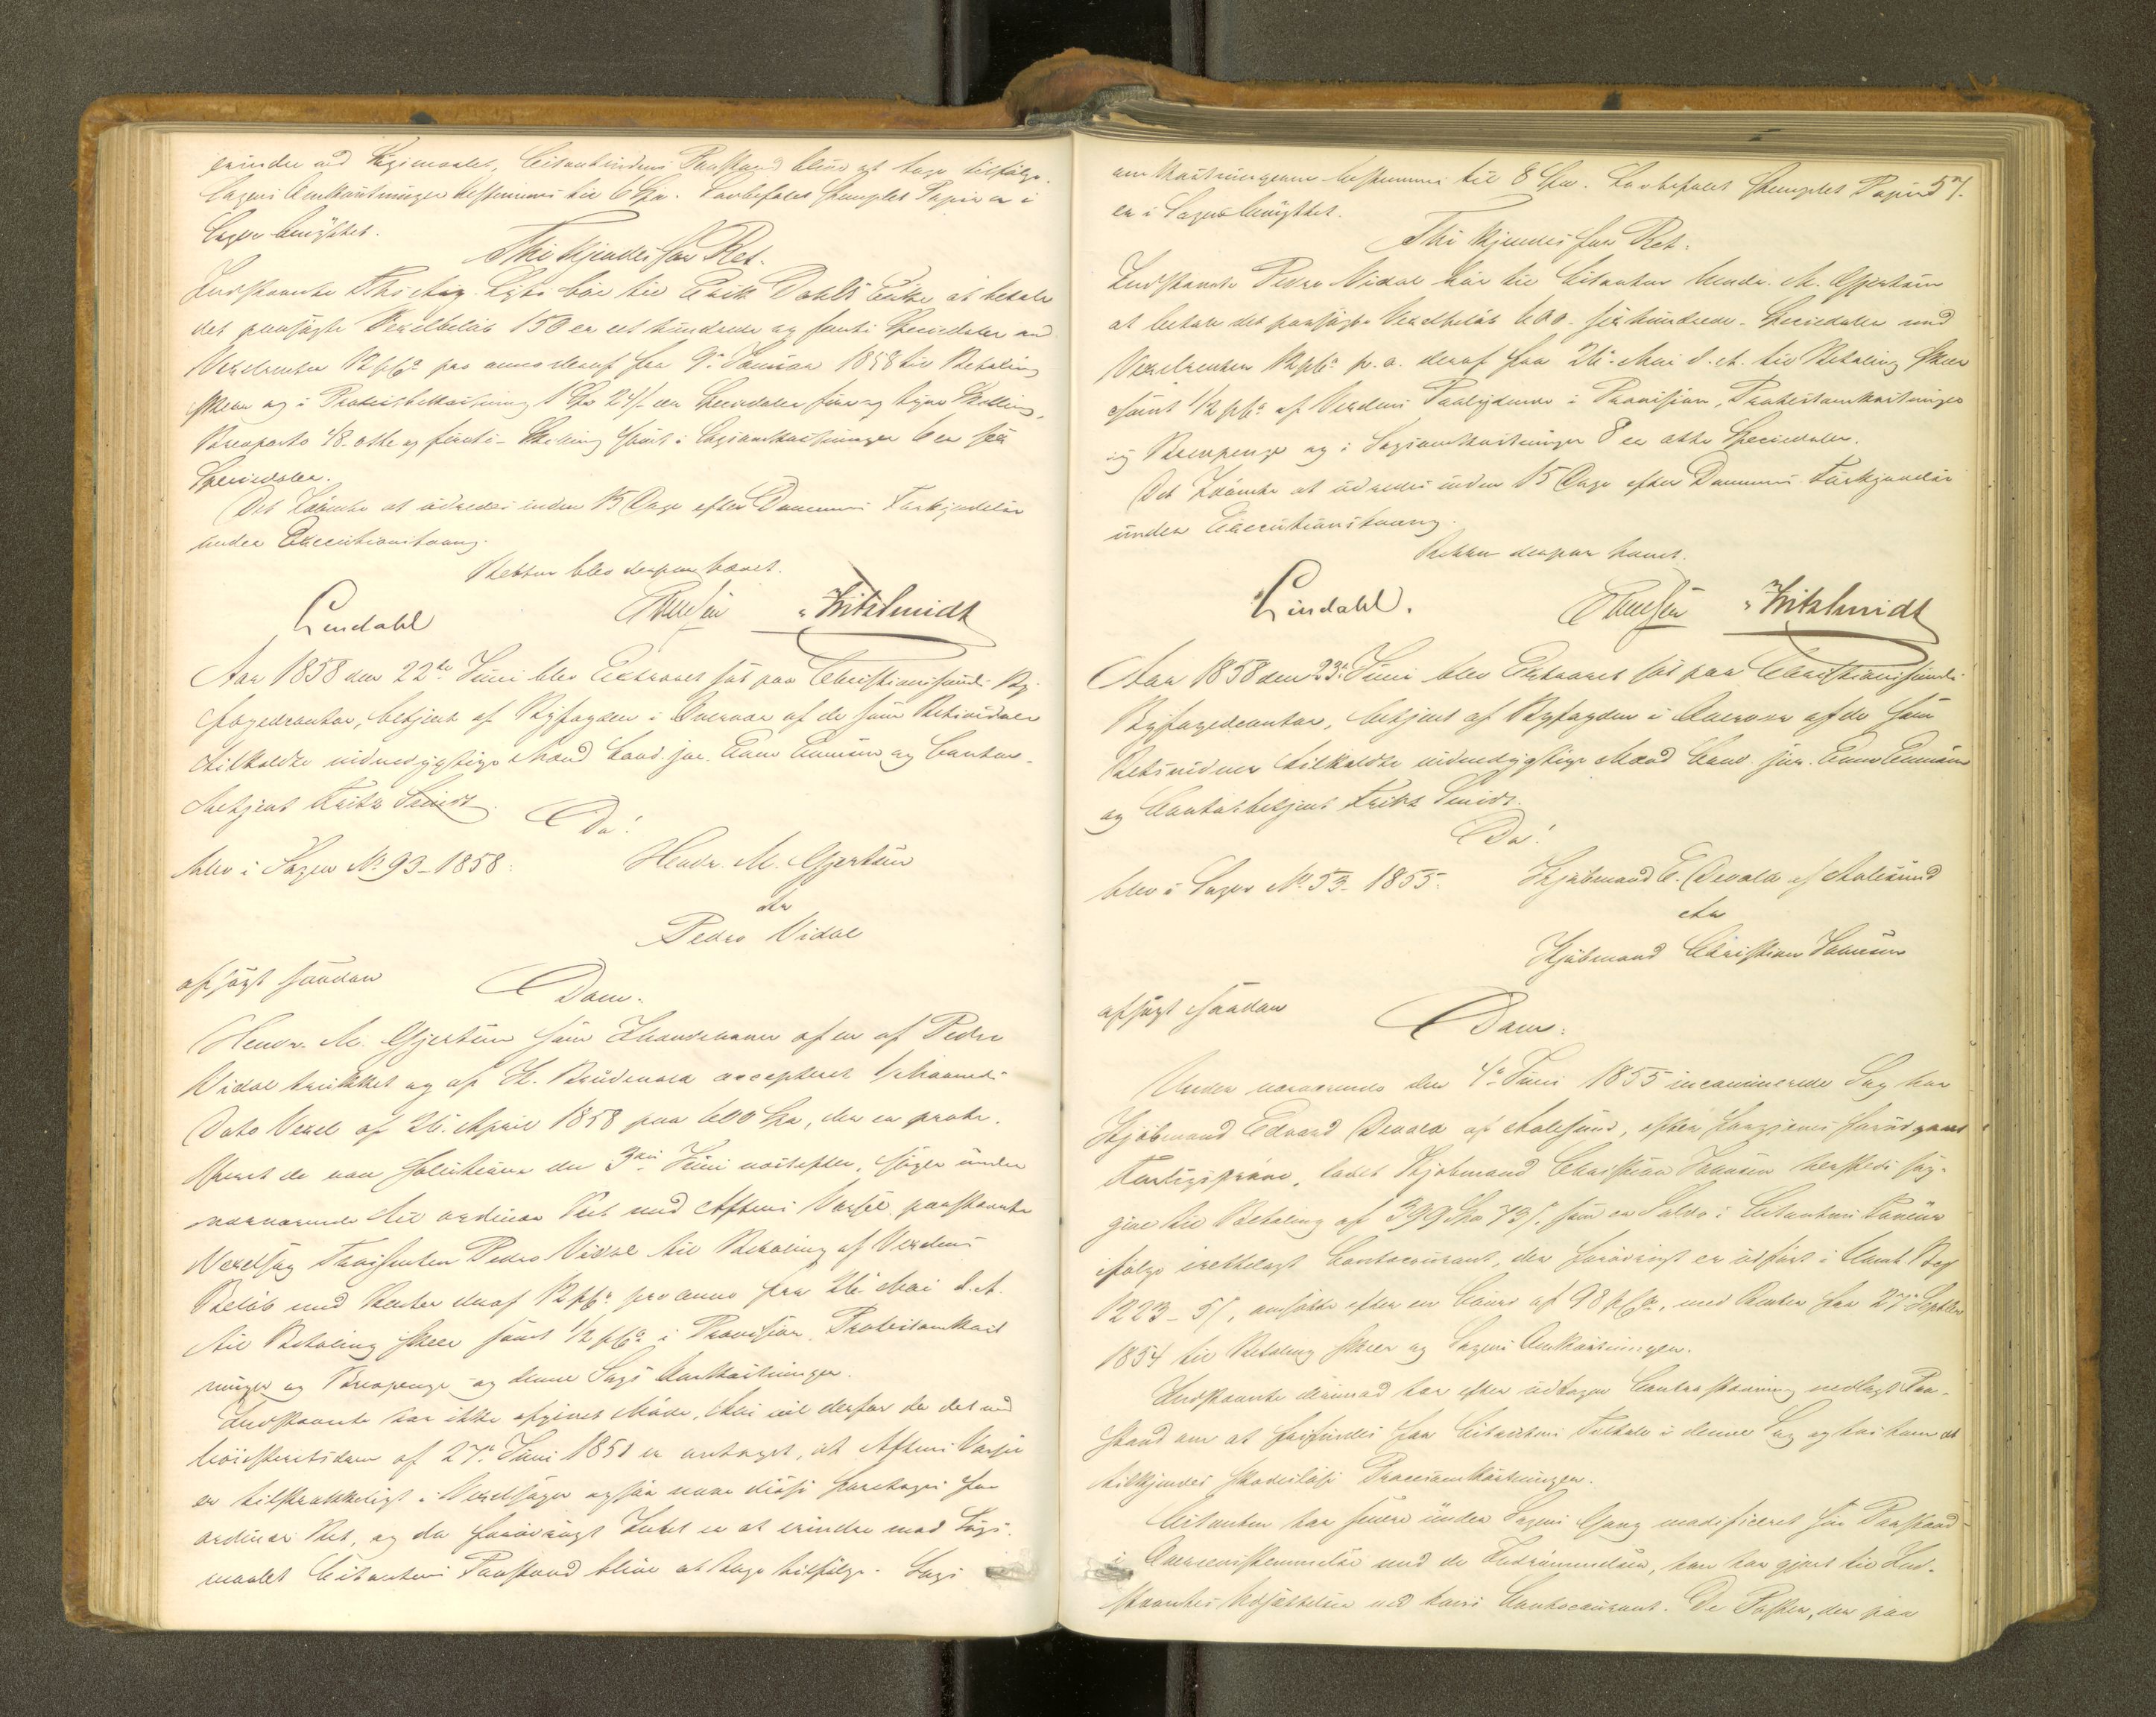 erindre ved Søgsmaalet, Citantindens Paastand blive at tage tilfølge.
Sagens Omkostninger bestemmes til 6 Spd. Lovbefalet stemplet Papir er i
Sagen benyttet.
Thi kjendes for Ret.
Indstevnte bør til Erik Dahls Enke at betale
det paasøgte Vexelbeløb 150 er eet hundrede og femti Speciedaler med
Vexelrenter 12 pCt pro anno deraf fra 9de Januar 1858 til Betaling
skeer og i Protestbekostning 1 Spd 24 s. een Speciedaler fire og tyve Skilling,
Brevporto 48 otte og firti Skilling samt i Sagsomkostninger 6 er sex
Speciedaler.
Det Idømte at udredes inden 15 Dage efter Dommens Forkyndelse
under Executionstvang.
Retten blev derpaa hævet.
Lindahl Fritz Smidt
Aar 1858 den 22de Juni blev Extraret sat paa Christianssunds By-
fogedcontor, betjent af Byfogden i Overvær af de som Retsvidner
tilkaldte vidnesdygtige Mænd Cand. jur. og Contor-
betjent Fritz Smidt.
Da!
blev i Sagen No 93-1858: Hendr. M. Gjertsen
ctr
Pedro Vidal
afsagt saadan
Dom:
Hendr. M. Gjertsen som Ihændehaver af en af Pedro
Vidal trukket og af H. accepteret 1 Maaneds
Dato Vexel af 26. April 1858 paa 600 Spd, der er prote-
steret de non solutione den 3die Juni næstefter, søger under
nærværende til ordinær Ret med Aftens Varsel paastævnte
Vexelsag Trassenten Pedro Vidal til Betaling af Vexelens
Beløb med Renter deraf 12 pCt pro anno fra 26. Mai d. A.
til Betaling skeer samt 1/2 pCt i Provision, Protestomkost
ninger og Brevpenge og denne Sags Omkostninger.
Indstævnte har ikke afgivet Møde, thi vil derfor da det ved
Høiesteretsdom af 27. Juni 1851 er antaget, at Aftens Varsel
er tilstrækkeligt i Vexelsager ogsaa naar disse foretages for
ordinær Ret, og da forøvrigt Intet er at erindre mod Søgs-
maalet Citantens Paastand blive at tage tilfølge. Sags
omkostningerne bestemmes til 8 Spd. Lovbefalet stemplet Papir 57.
er i Sagen benyttet.
Thi kjendes for Ret:
Indstævnte Pedro Vidal bør til Citanten Hendr. M. Gjertsen
at betale det paasøgte Vexelbeløb 600 sex hundrede Speciedaler med
Vexelrenter 12 pCt p. a. deraf fra 26. Mai d. A. til Betaling skeer
samt 1/2 pCt af Vexelens Paalydende i Provision, Protestomkostninger
og Brevpenge og i Sagsomkostninger 8 er otte Speciedaler.
Det Idømte at udredes inden 15 Dage efter Dommens Forkyndelse
under Executionstvang.
Retten derpaa hævet.
Lindahl. Fritz Smidt
Aar 1858 den 23de Juni blev Extraret sat paa Christianssunds
Byfogedcontor, betjent af Byfogden i Overvær af de som
Retsvidner tilkaldte vidnesdygtige Mænd Cand. jur.
og Contorbetjent Fritz Smidt.
Da!
blev i Sagen No 53-1855: Kjøbmand E. Devold af Aalesund
ctr
Kjøbmand Christian Johnsen
afsagt saadan
Dom:
Under nærværende den 4de Juni 1855 incaminerede Sag har
Kjøbmand Edvard Devold af Aalesund, efter forgjæves forudgaaet
Forligsprøve, ladet Kjøbmand Christian Johnsen herstedts sag-
give til Betaling af 399 Spd 73 s. som er Saldo i Citantens Faveur
ifølge irettelagt Contocourant, der forøvrigt er udført i Hamb. Bco
1223 - 5 s, ansatte efter en Cours af 98 pCt, med Renter fra 27 Septbr
1854 til Betaling skeer og Sagens Omkostninger.
Indstævnte derimod har efter udtagen Contrastævning nedlagt Paa-
stand om at frifindes for Citantens Tiltale i denne Sag og hos ham at
tilkjendes skadesløse Procesomkostninger.
Citanten har senere under Sagens Gang modificeret sin Paastand
i Overensstemmelse med de Indrømmelser, han har gjort til Ind-
stævntes Udsættelser ved hans Contocourant. De Poster, der paa